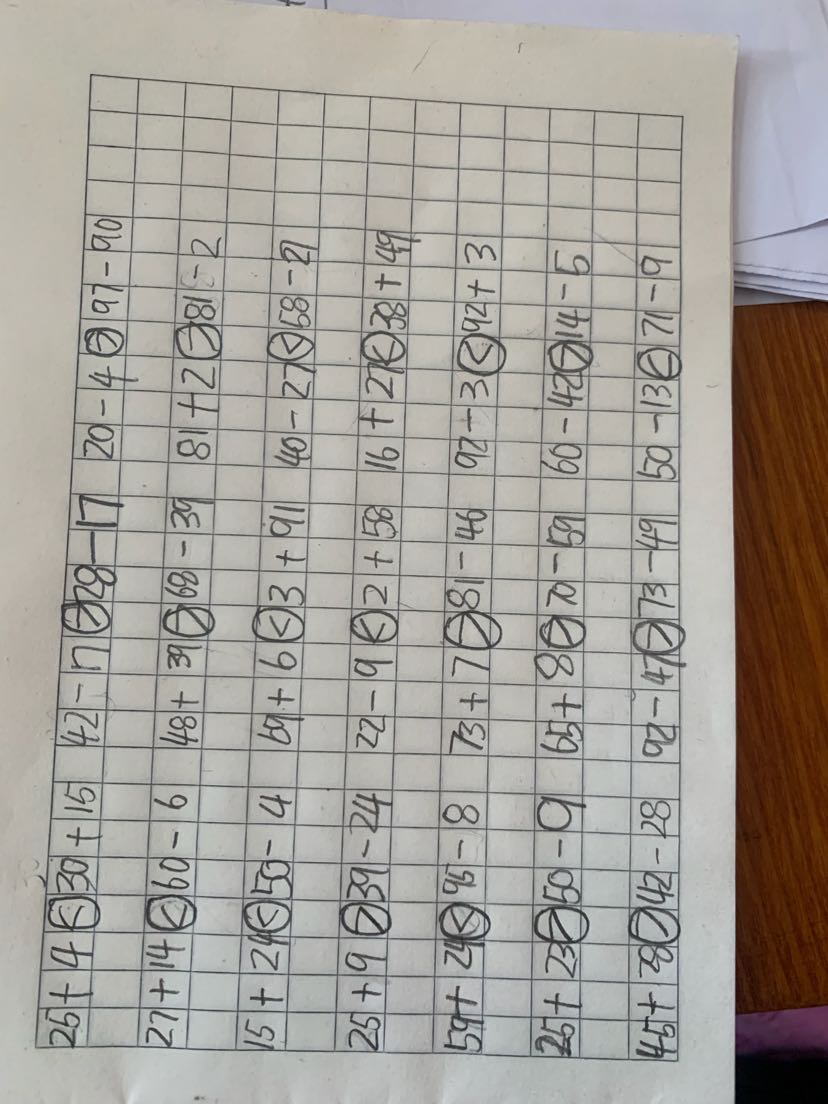 25+4<30+15 42-17>28-17 20-4>97-90
27+14<60-6 48+39>68-39 81+2>81-2
15+24<50-4 69+6<3+91 40-27<58-21
25+9>39-24 22-9<2+58 16+27<38+49
59+24<95-8 73+7>81-46 92-3<92+3
25+23>50-9 65+8>70-59 60-42>14-5
45+28>42-28 92-47>73-49 50-13<71-9